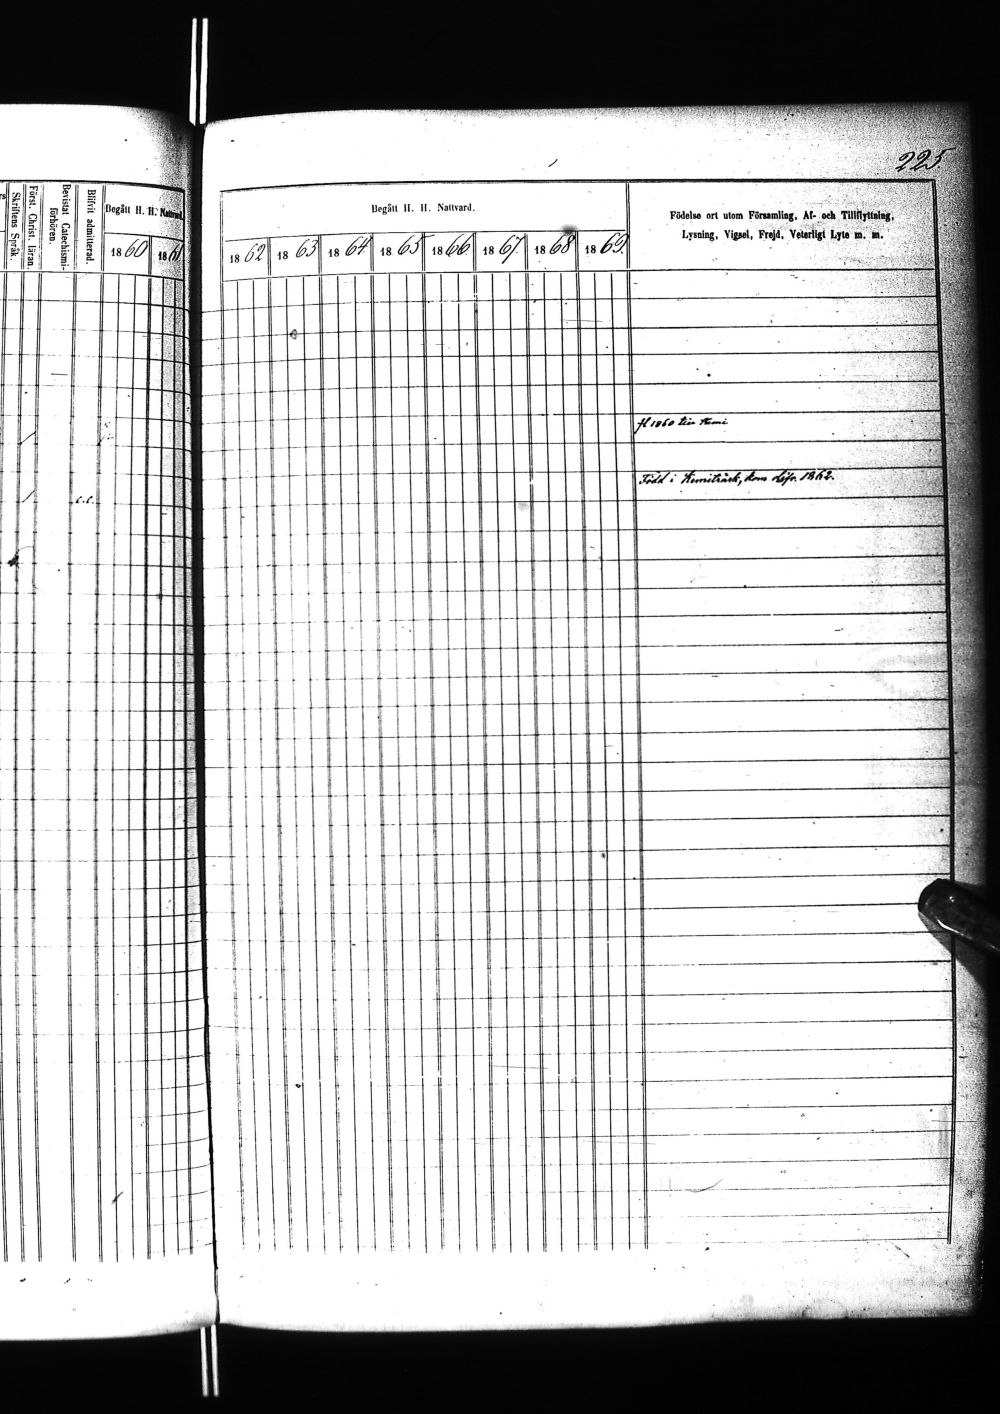 225
Skriftens Språk.
Först. Christ. läran.
Bevistat Catechismi-
förhören.
Blifvit admitterad.
Begått H. H. Nattvard.
1860 1861
Begått H. H. Nattvard.
1862 1863 1864 1865 1866 1867 1868 1869.
Födelse ort utom Församling, Af- och Tillflyttning,
Lysning, Vigsel, Frejd, Veterligt Lyte m. m.
fl 1860 till Kemi
Född i Kemiträsk, kom 1862.